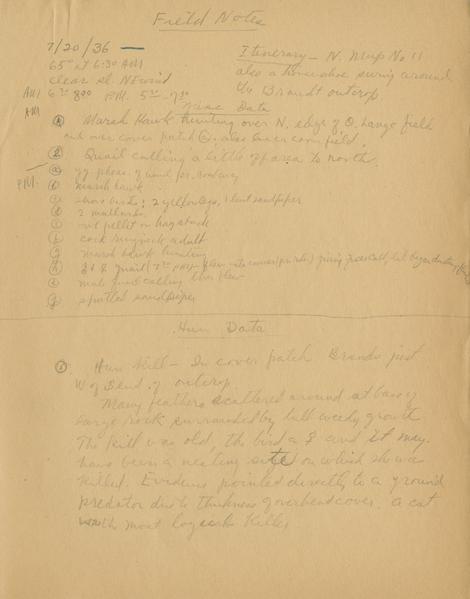 Field Notes
7/20/36 —
65° at 6:30 AM
Clear sl. NE wind
AM 6 30 8 00 P.M. 5 30 - 7 30
Itinerary — N. Map No 11
also a horseshoe swing around
Brandt outcrop
Misc Data
AM
Marsh Hawk hunting over N. edge of O. Lange field
and over cover patch also Green cornfield.
Quail calling a little off area to north.
P.M.
phea.
marsh hawk
shore birds; 2 yellowlegs, 1 least sandpiper
2 mallards
owl pellet on haystack
cock ringneck adult
marsh hawk hunting
quail
male quail calling
spotted sandpiper
Hun Data
① Hun Kill — In cover patch Brandt just
W of Bend of outcrop.
Many feathers scattered around at base of
large rock surrounded by tall weedy growth
The kill was old, the bird a ♀ and it may
have been a nesting site on which she was
killed. Evidence pointed directly to a ground
predator due to thickness of overhead cover. a cat
most logical Killer